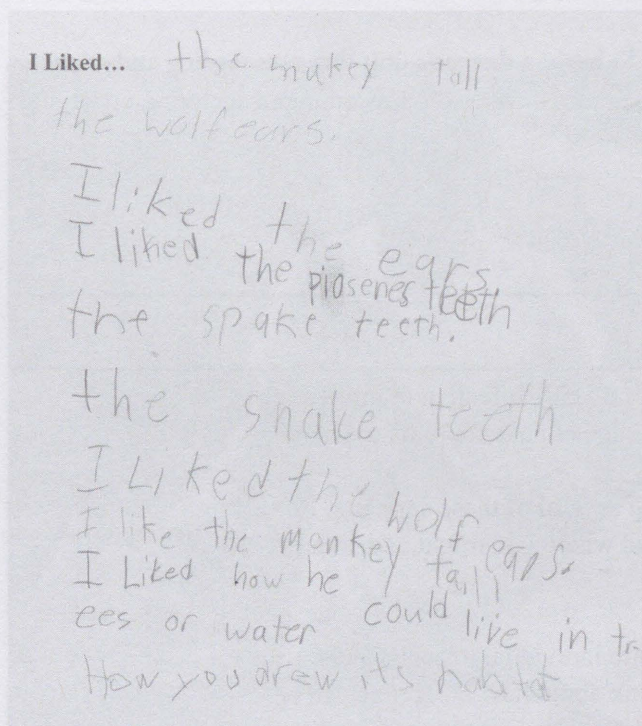 I Liked... the mukey tall
the wolf ears.
I liked the ears
I liked the piosenes teeth
the snake teeth.
the snake teeth
I Liked the wolf ears.
I like the monkey tail
I Liked how he could live in tr
ees or water
How you drew its habitat